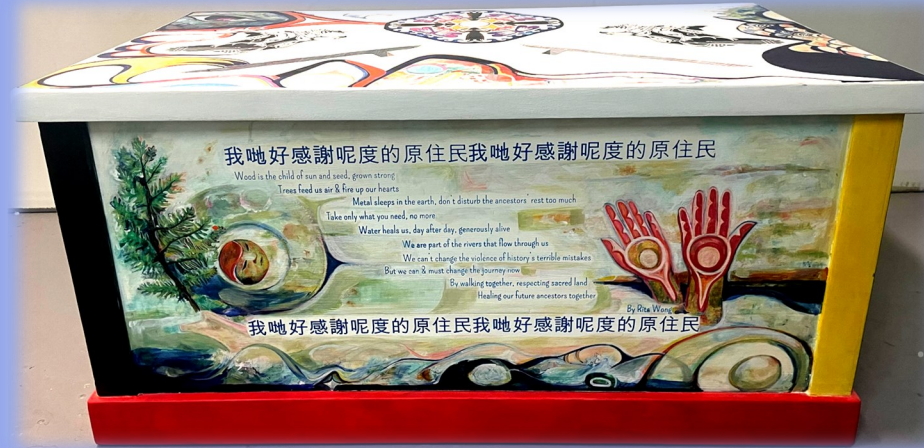 我哋好感謝呢度的原住民我哋好感謝呢度的原住民
Wood is the child of sun and seed, grown strong
Trees feed us air & fire up our hearts
Metal sleeps in the earth, don't disturb the ancestors' rest too much
Take only what you need, no more
Water heals us, day after day, generously alive
We are part of the rivers that flow through us
We can't change the violence of history's terrible mistakes
But we can & must change the journey now
By walking together, respecting sacred land
Healing our future ancestors together
By Rita Wong
我哋好感謝呢度的原住民我哋好感謝呢度的原住民